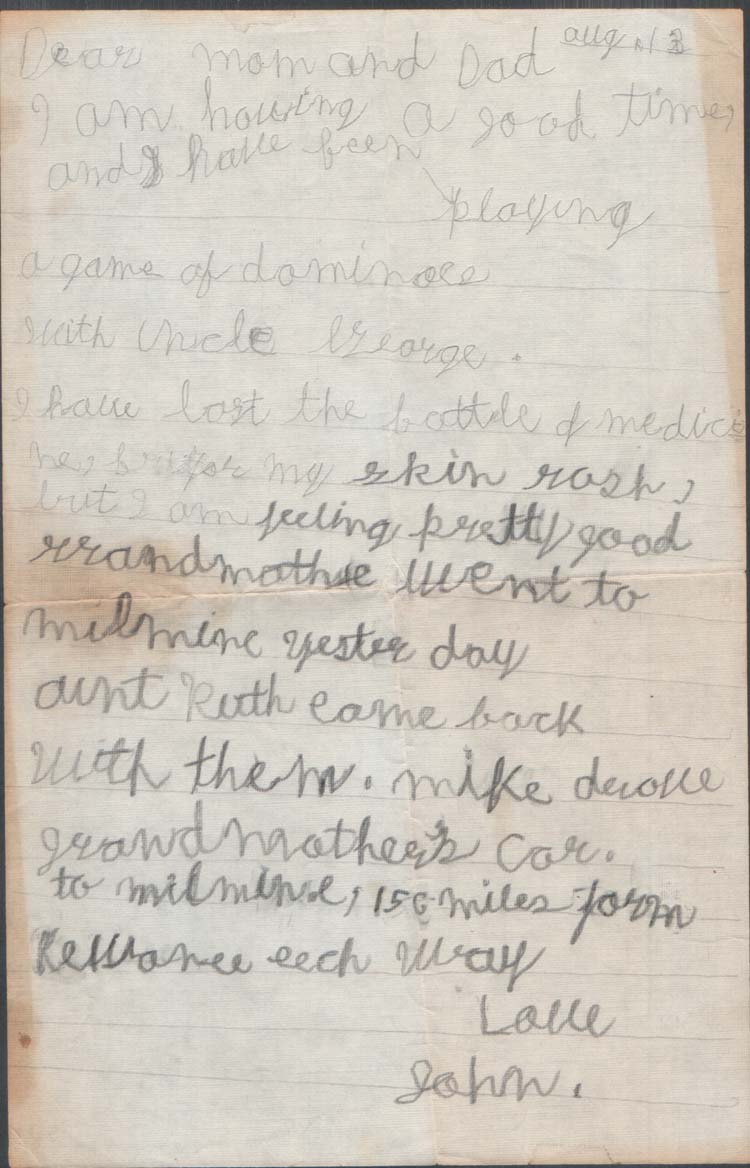 aug. 13
Dear mom and Dad
I am having a good time,
and I have been
playing
a game of dominoee
with Uncle George.
I have lost the bottle of medici
ne, for my skin rash,
but I am feeling pretty good
grandmothe went to
milmine yester day
aunt Ruth came back
with them. mike drove
grandmother's car.
to milmine, 150 miles form
Kewanee eech way
Love
John.